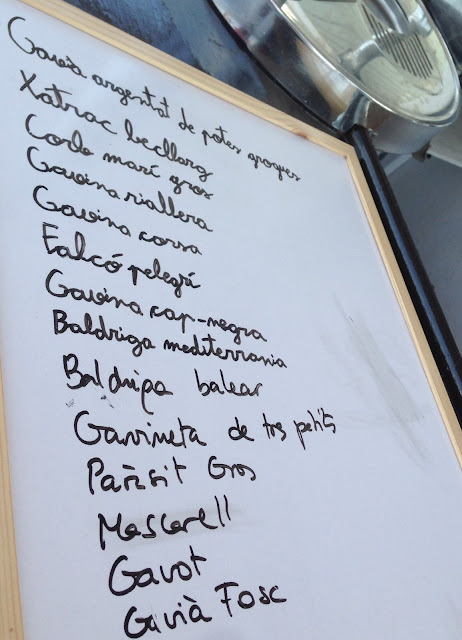 Gavià argentat de potes grogues
Xatrac becllarg
Corb marí gros
Gavina riallera
Gavina corsa
Falcó pelegrí
Gavina cap-negra
Baldriga mediterrania
Baldriga balear
Gavineta de tres petits
Paràsit Gros
Mascarell
Gavot
Gavià Fosc